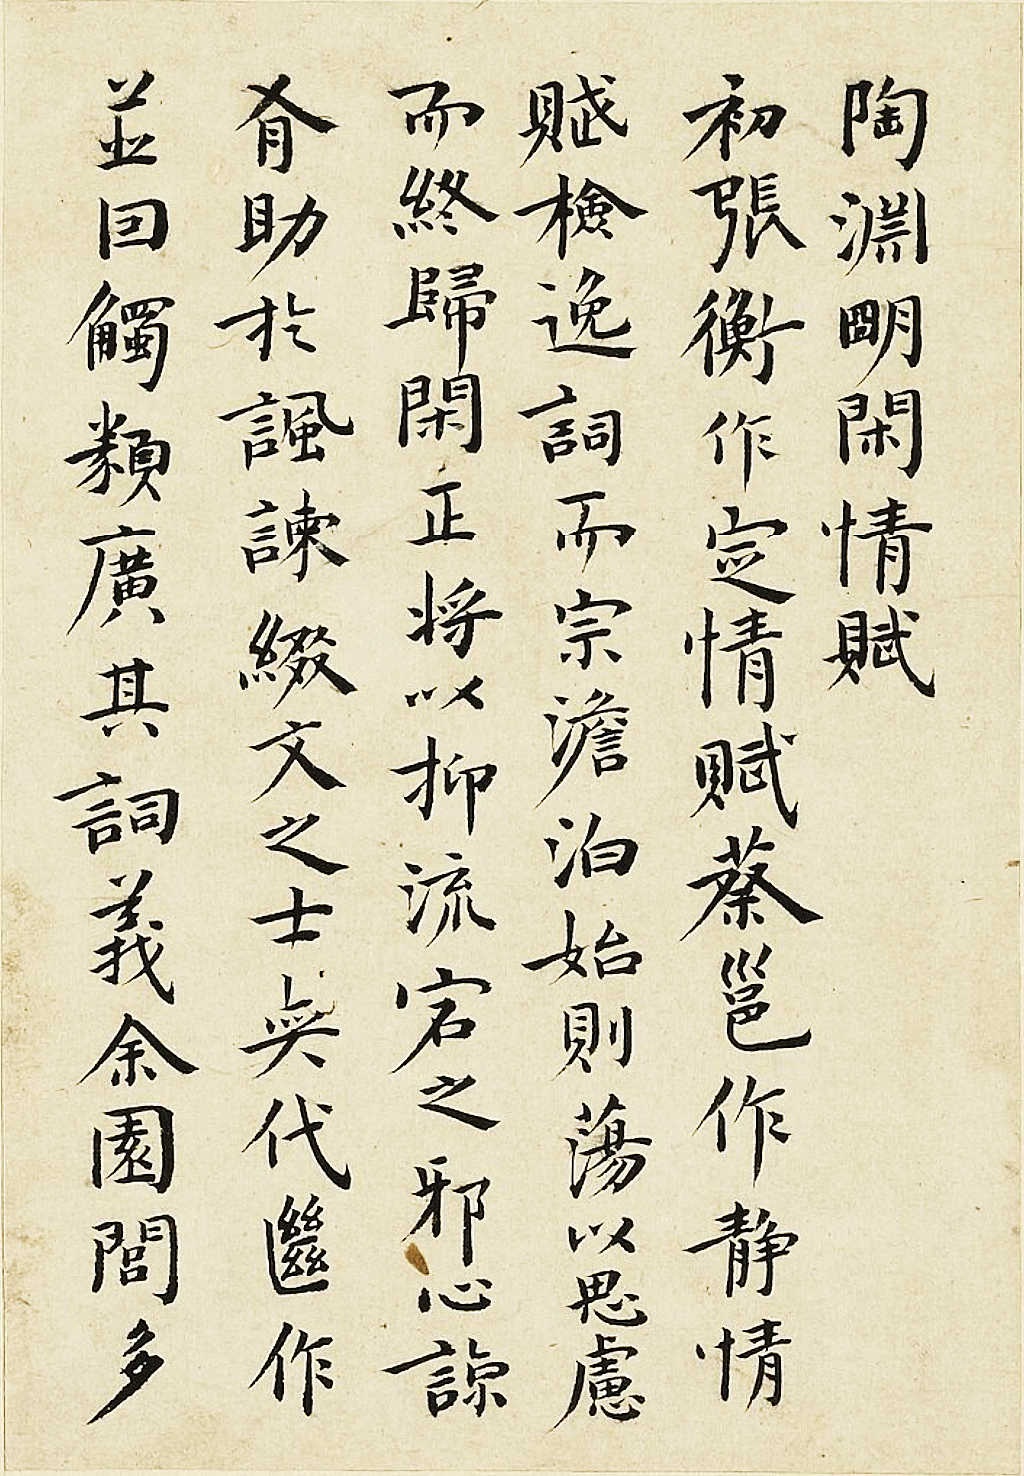 陶淵明閑情賦
初張衡作定情賦蔡邕作静情
賦檢逸詞而宗澹泊始則蕩以思慮
而終歸閑正将以抑流宕之邪心諒
有助於諷諫綴文之士奕代繼作
並囙觸類廣其詞義余園閭多